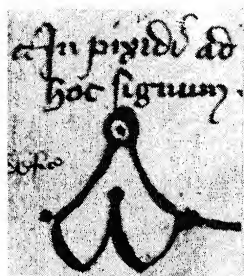 In pixidi ad
hoc signum